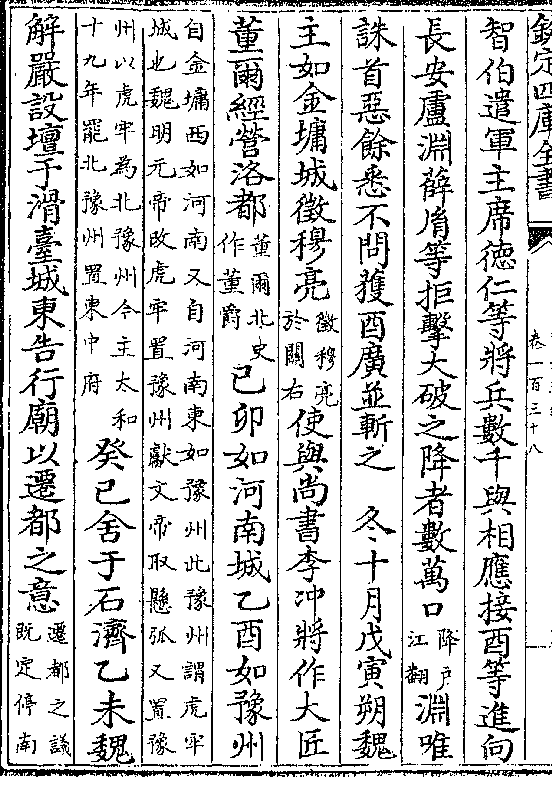 欽定四庫全書
卷一百三十八
智伯遣軍主席徳仁等將兵數千與相應接酉等進向
長安盧淵薛胤等拒擊大破之降者數萬口降户江翻淵唯
誅首惡餘悉不問獲酉廣並斬之　冬十月戊寅朔魏
主如金墉城徵穆亮徵穆亮於關右使與尚書李冲將作大匠
董爾經營洛都董爾北史作董爵己卯如河南城乙酉如豫州
自金墉西如河南又自河南東如豫州此豫州謂虎牢
城也魏明元帝改虎牢置豫州獻文帝取懸弧又置豫
州以虎牢為北豫州今主太和
十九年罷北豫州置東中府
癸巳舍于石濟乙未魏
解嚴設壇于滑臺城東告行廟以遷都之意遷都之議既定停南